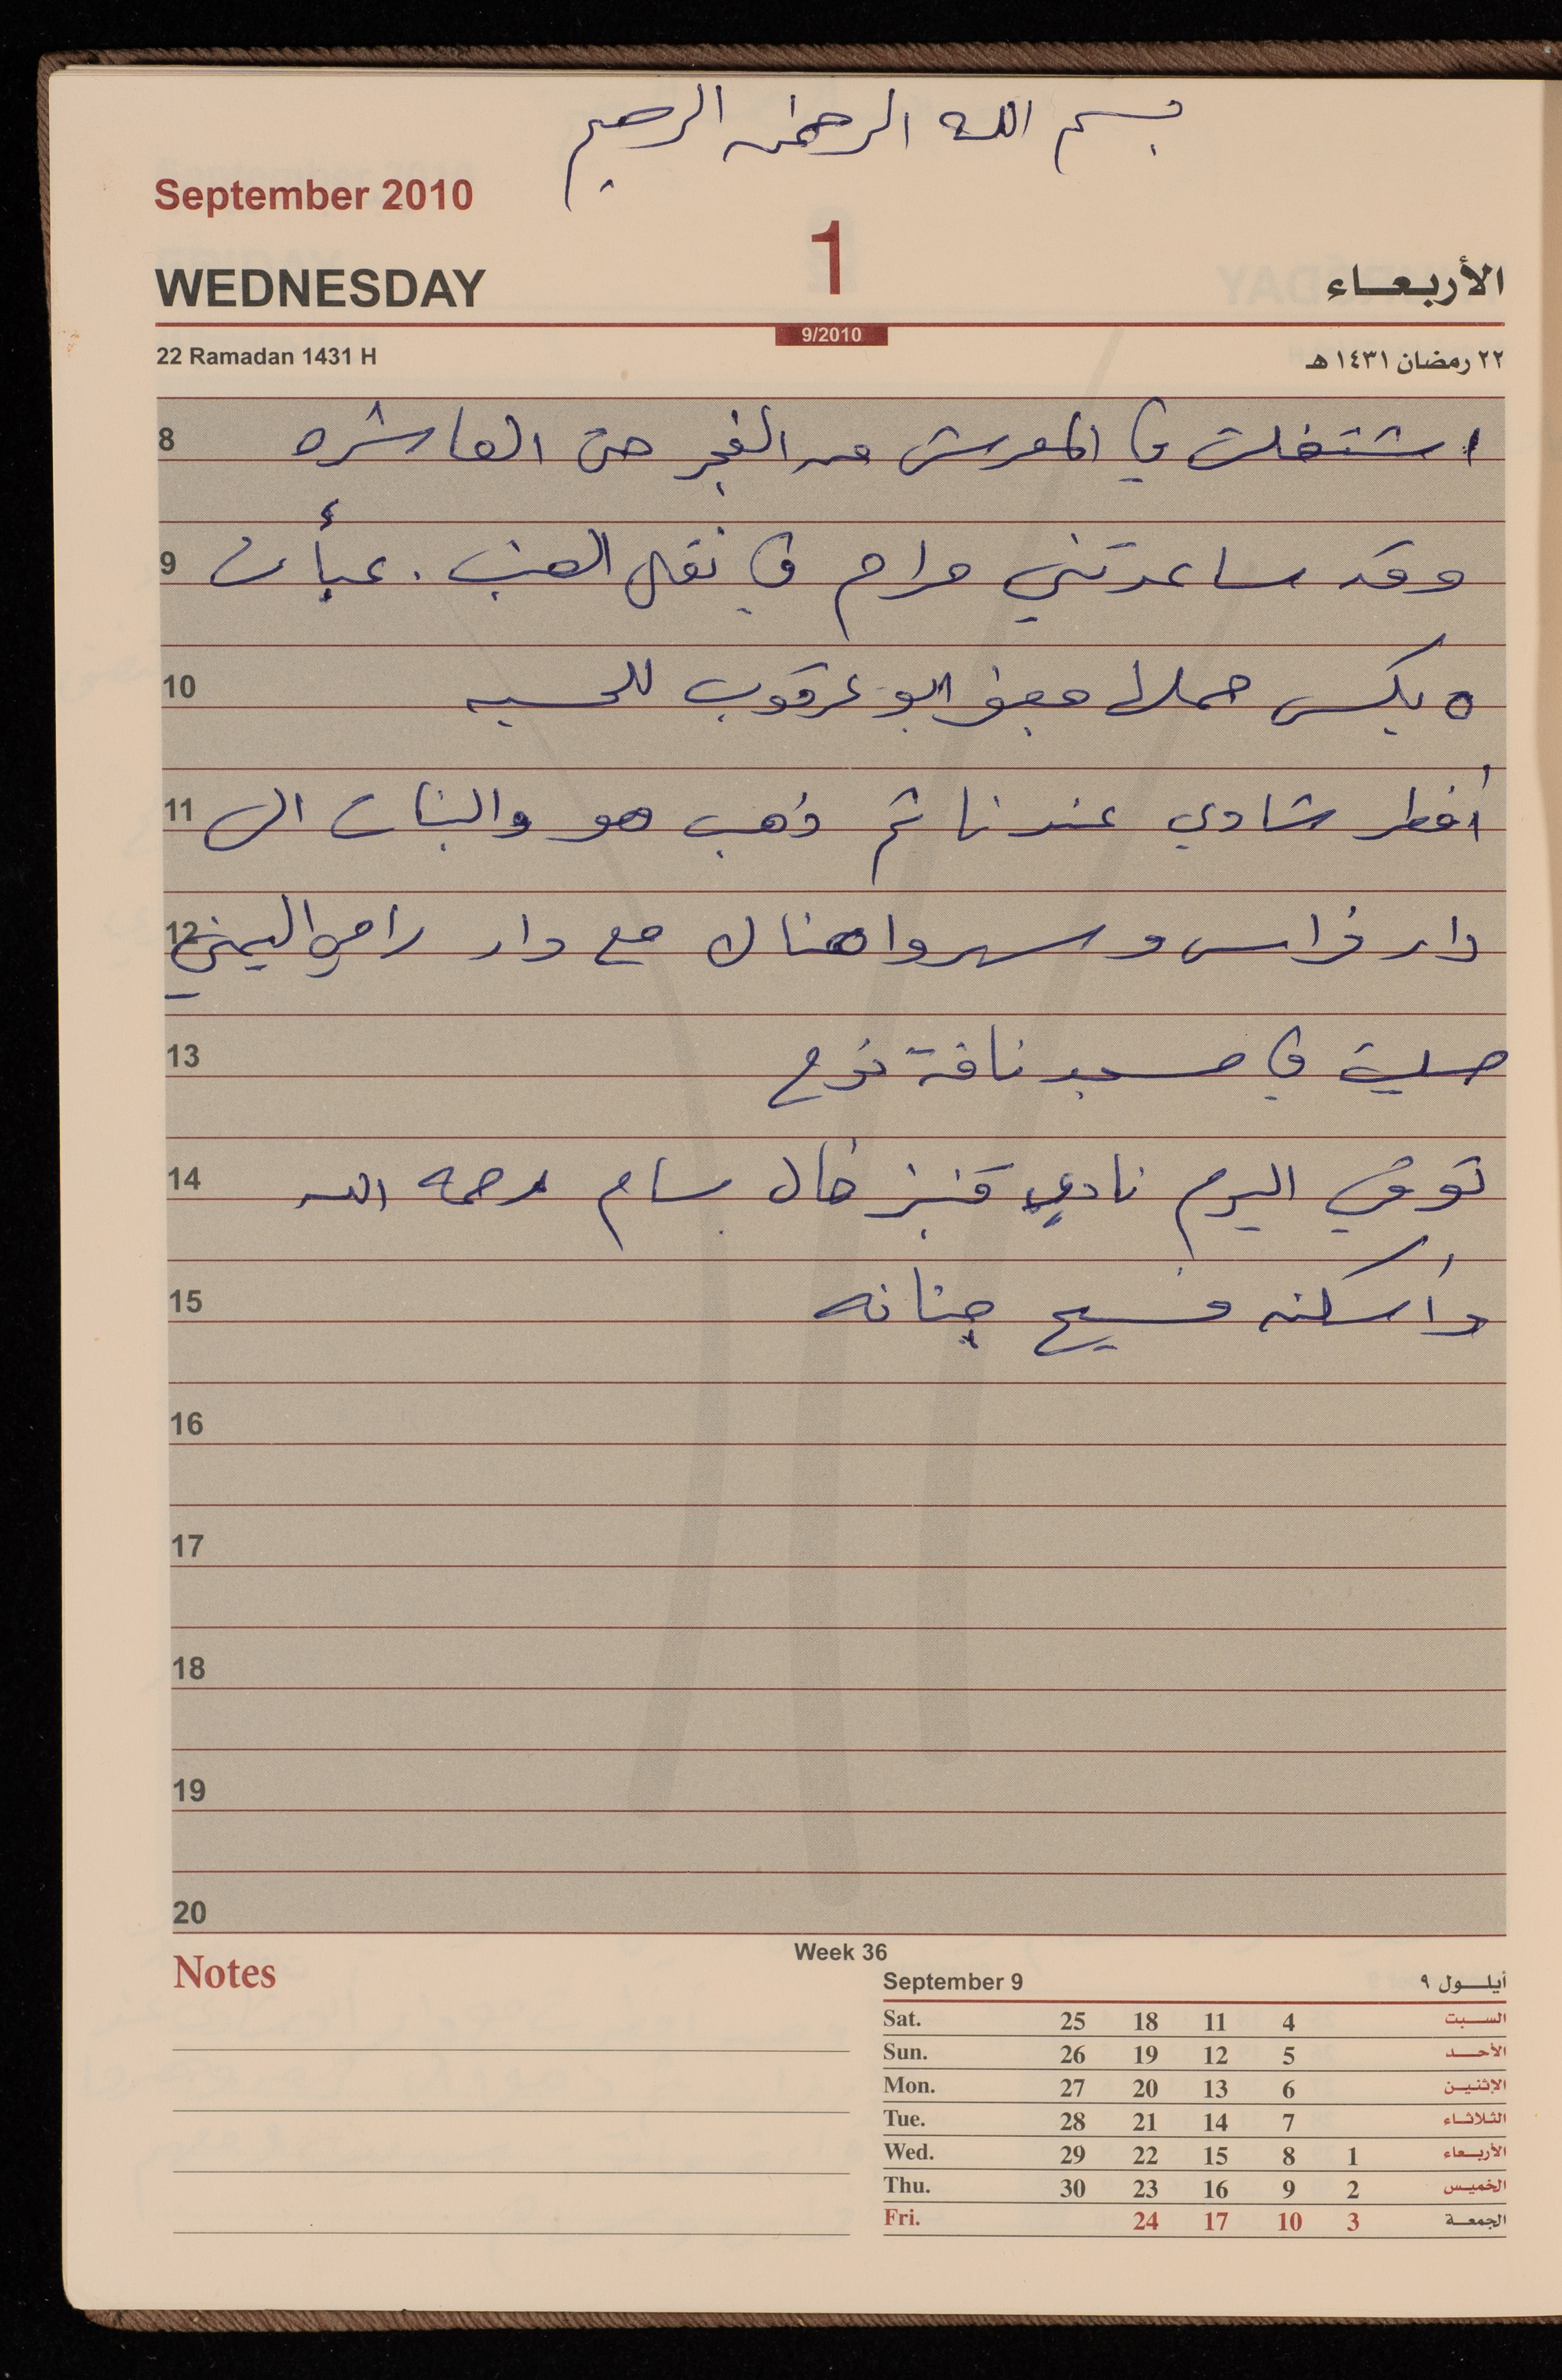 بسم الله الرحمن الرحيم
September 2010
1
WEDNESDAY
الأربعاء
9/2010
22 Ramadan 1431 H
٢٢ رمضان ١٤٣١ هـ
8 اشتغلت في المعرش من الفجر حتى العاشره
9 وقد ساعدتني مرام في نقل العنب . عبأت
10 ٥ بكس حملها ابو عرقوب للحسبه
11 أفطر شادي عندنا ثم ذهب هو والبنات الى
12 دار فراس وسهروا هناك مع دار رامي اليمني
13 صليت في مسجد ناقة نوح
14 توفي اليوم نادي قنبز خال بسام رحمه الله
15 وأسكنه فسيح جنانه
16
17
18
19
20
Notes
Week 36
September 9
أيلول ٩
Sat. 25 18 11 4 السبت
Sun. 26 19 12 5 الأحد
Mon. 27 20 13 6 الإثنين
Tue. 28 21 14 7 الثلاثاء
Wed. 29 22 15 8 1 الأربعاء
Thu. 30 23 16 9 2 الخميس
Fri. 24 17 10 3 الجمعة